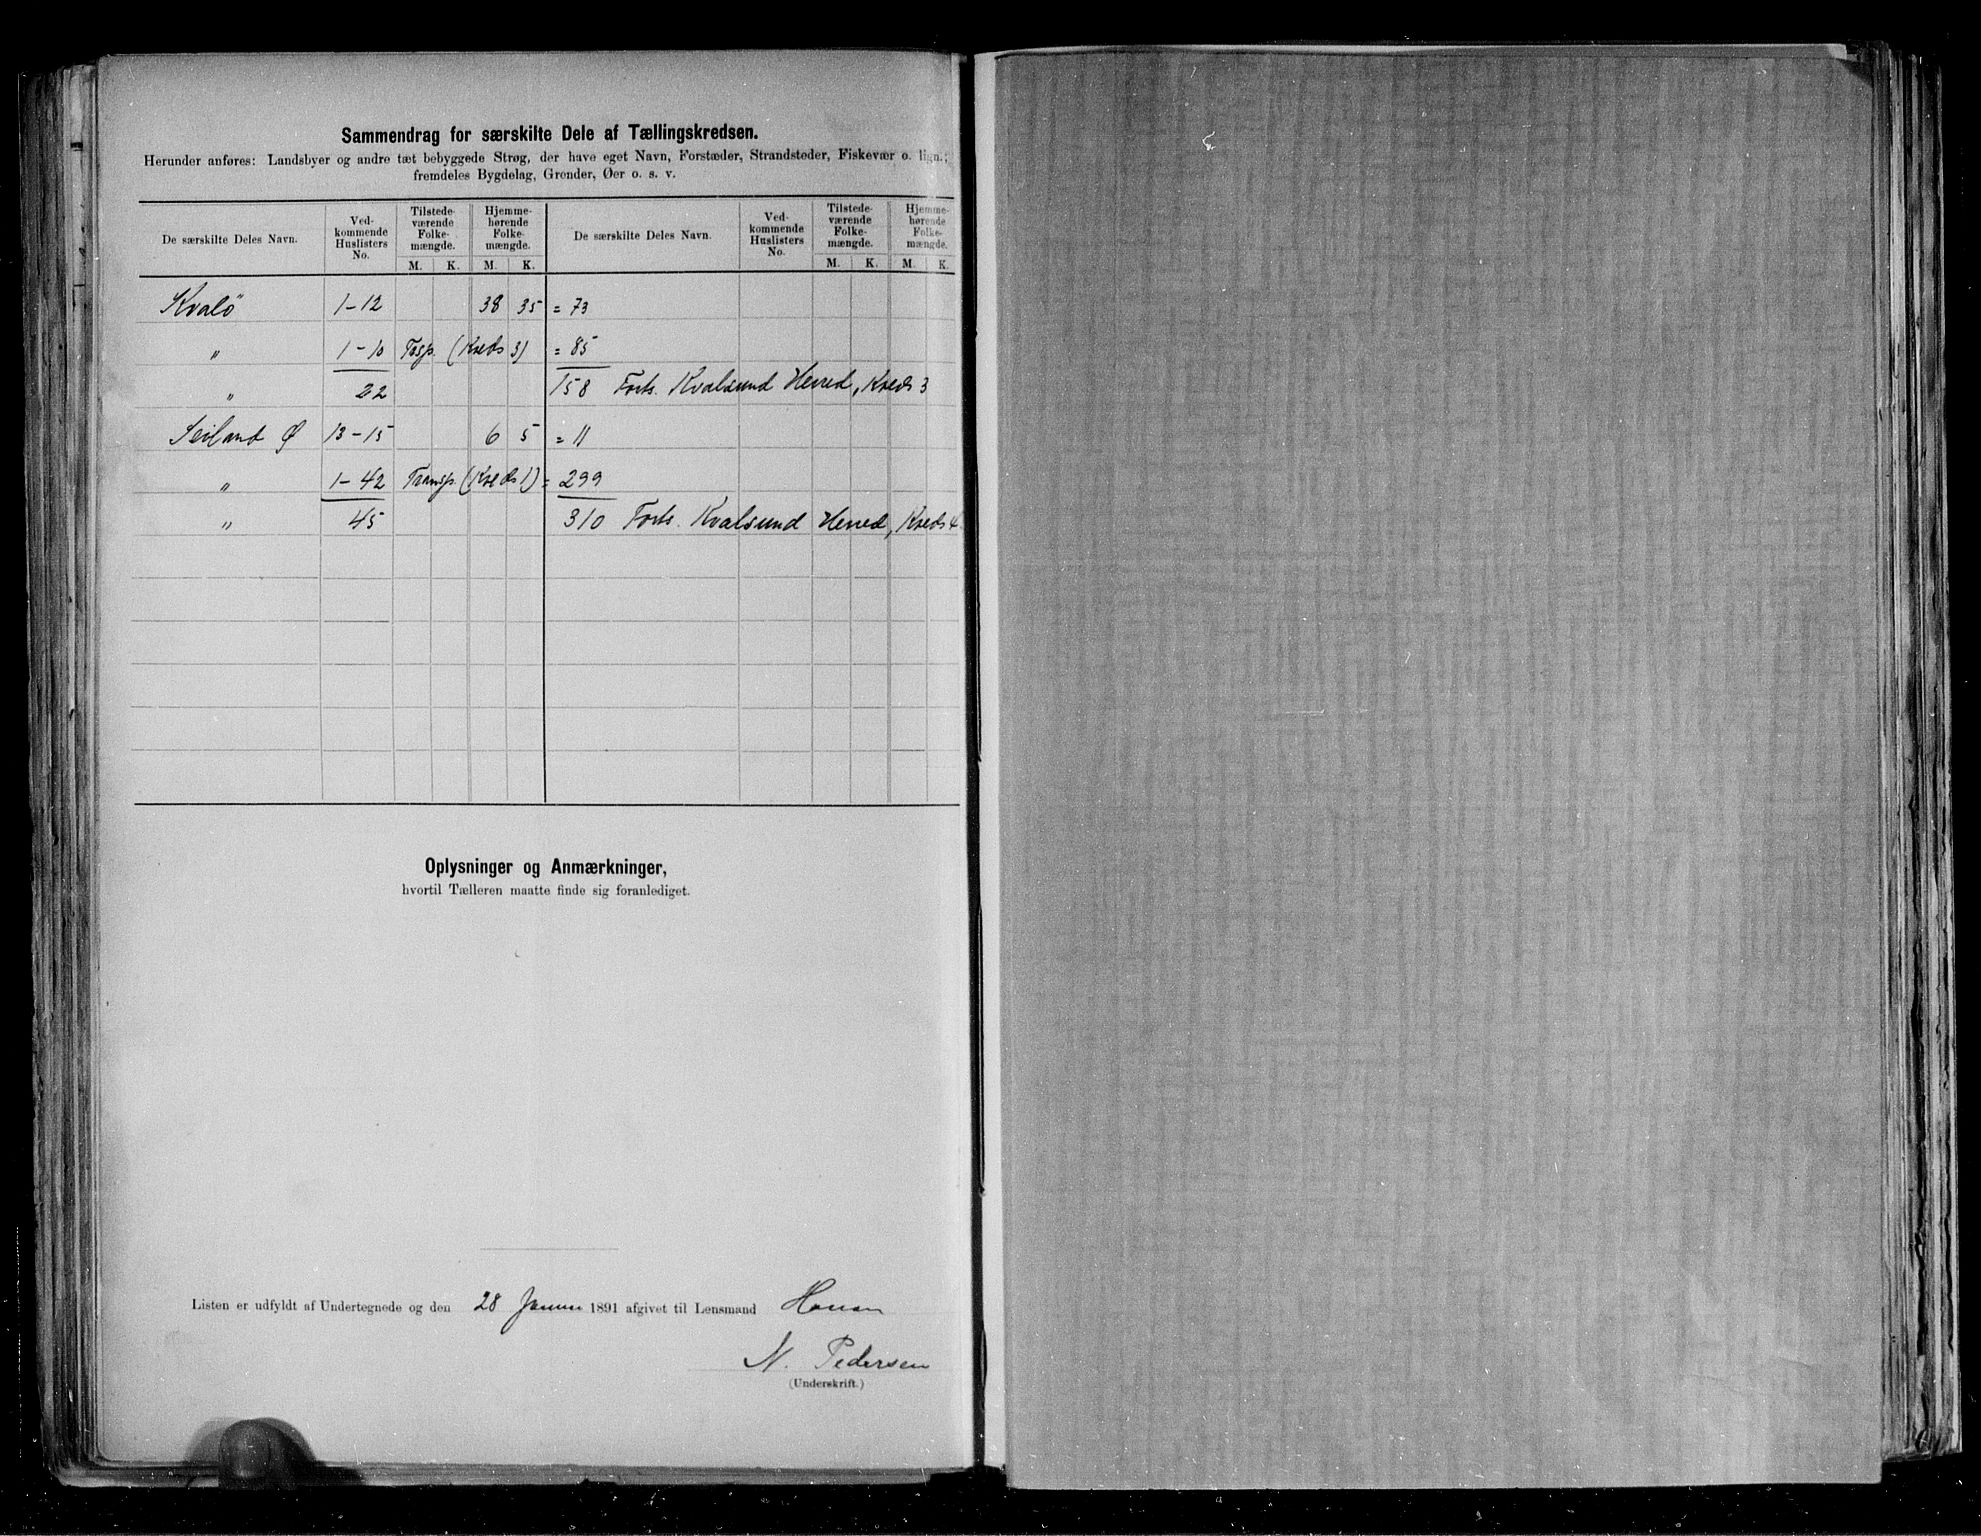 Sammendrag for særskilte Dele af Tællingskredsen.
Herunder anføres: Landsbyer og andre tæt bebyggede Strøg, der have eget Navn, Forstæder, Strandsteder, Fiskevær o. lign.;
fremdeles Bygdelag, Grender, Øer o. s. v.
De særskilte Deles Navn. Ved-kommende Huslisters No. Tilstede-værende Folke-mængde. Hjemme-hørende Folke-mængde. De særskilte Deles Navn. Ved-kommende Huslisters No. Tilstede-værende Folke-mængde. Hjemme-hørende Folke-mængde.
M. K. M. K. M. K. M. K.
Kvalö 1-12 38 35 = 73
" 1-10 (Kreds 3) = 85
" 22 158 Forts. Kvalsund Herred, Kreds 3
Seiland Ø 13-15 6 5 = 11
" 1-42 Transp. (Kreds 1) = 299
" 45 310 Forts. Kvalsund Herred, Kreds 4
Oplysninger og Anmærkninger,
hvortil Tælleren maatte finde sig foranlediget.
Listen er udfyldt af Undertegnede og den 28 Januar 1891 afgivet til Lensmand
N. Pedersen
(Underskrift.)